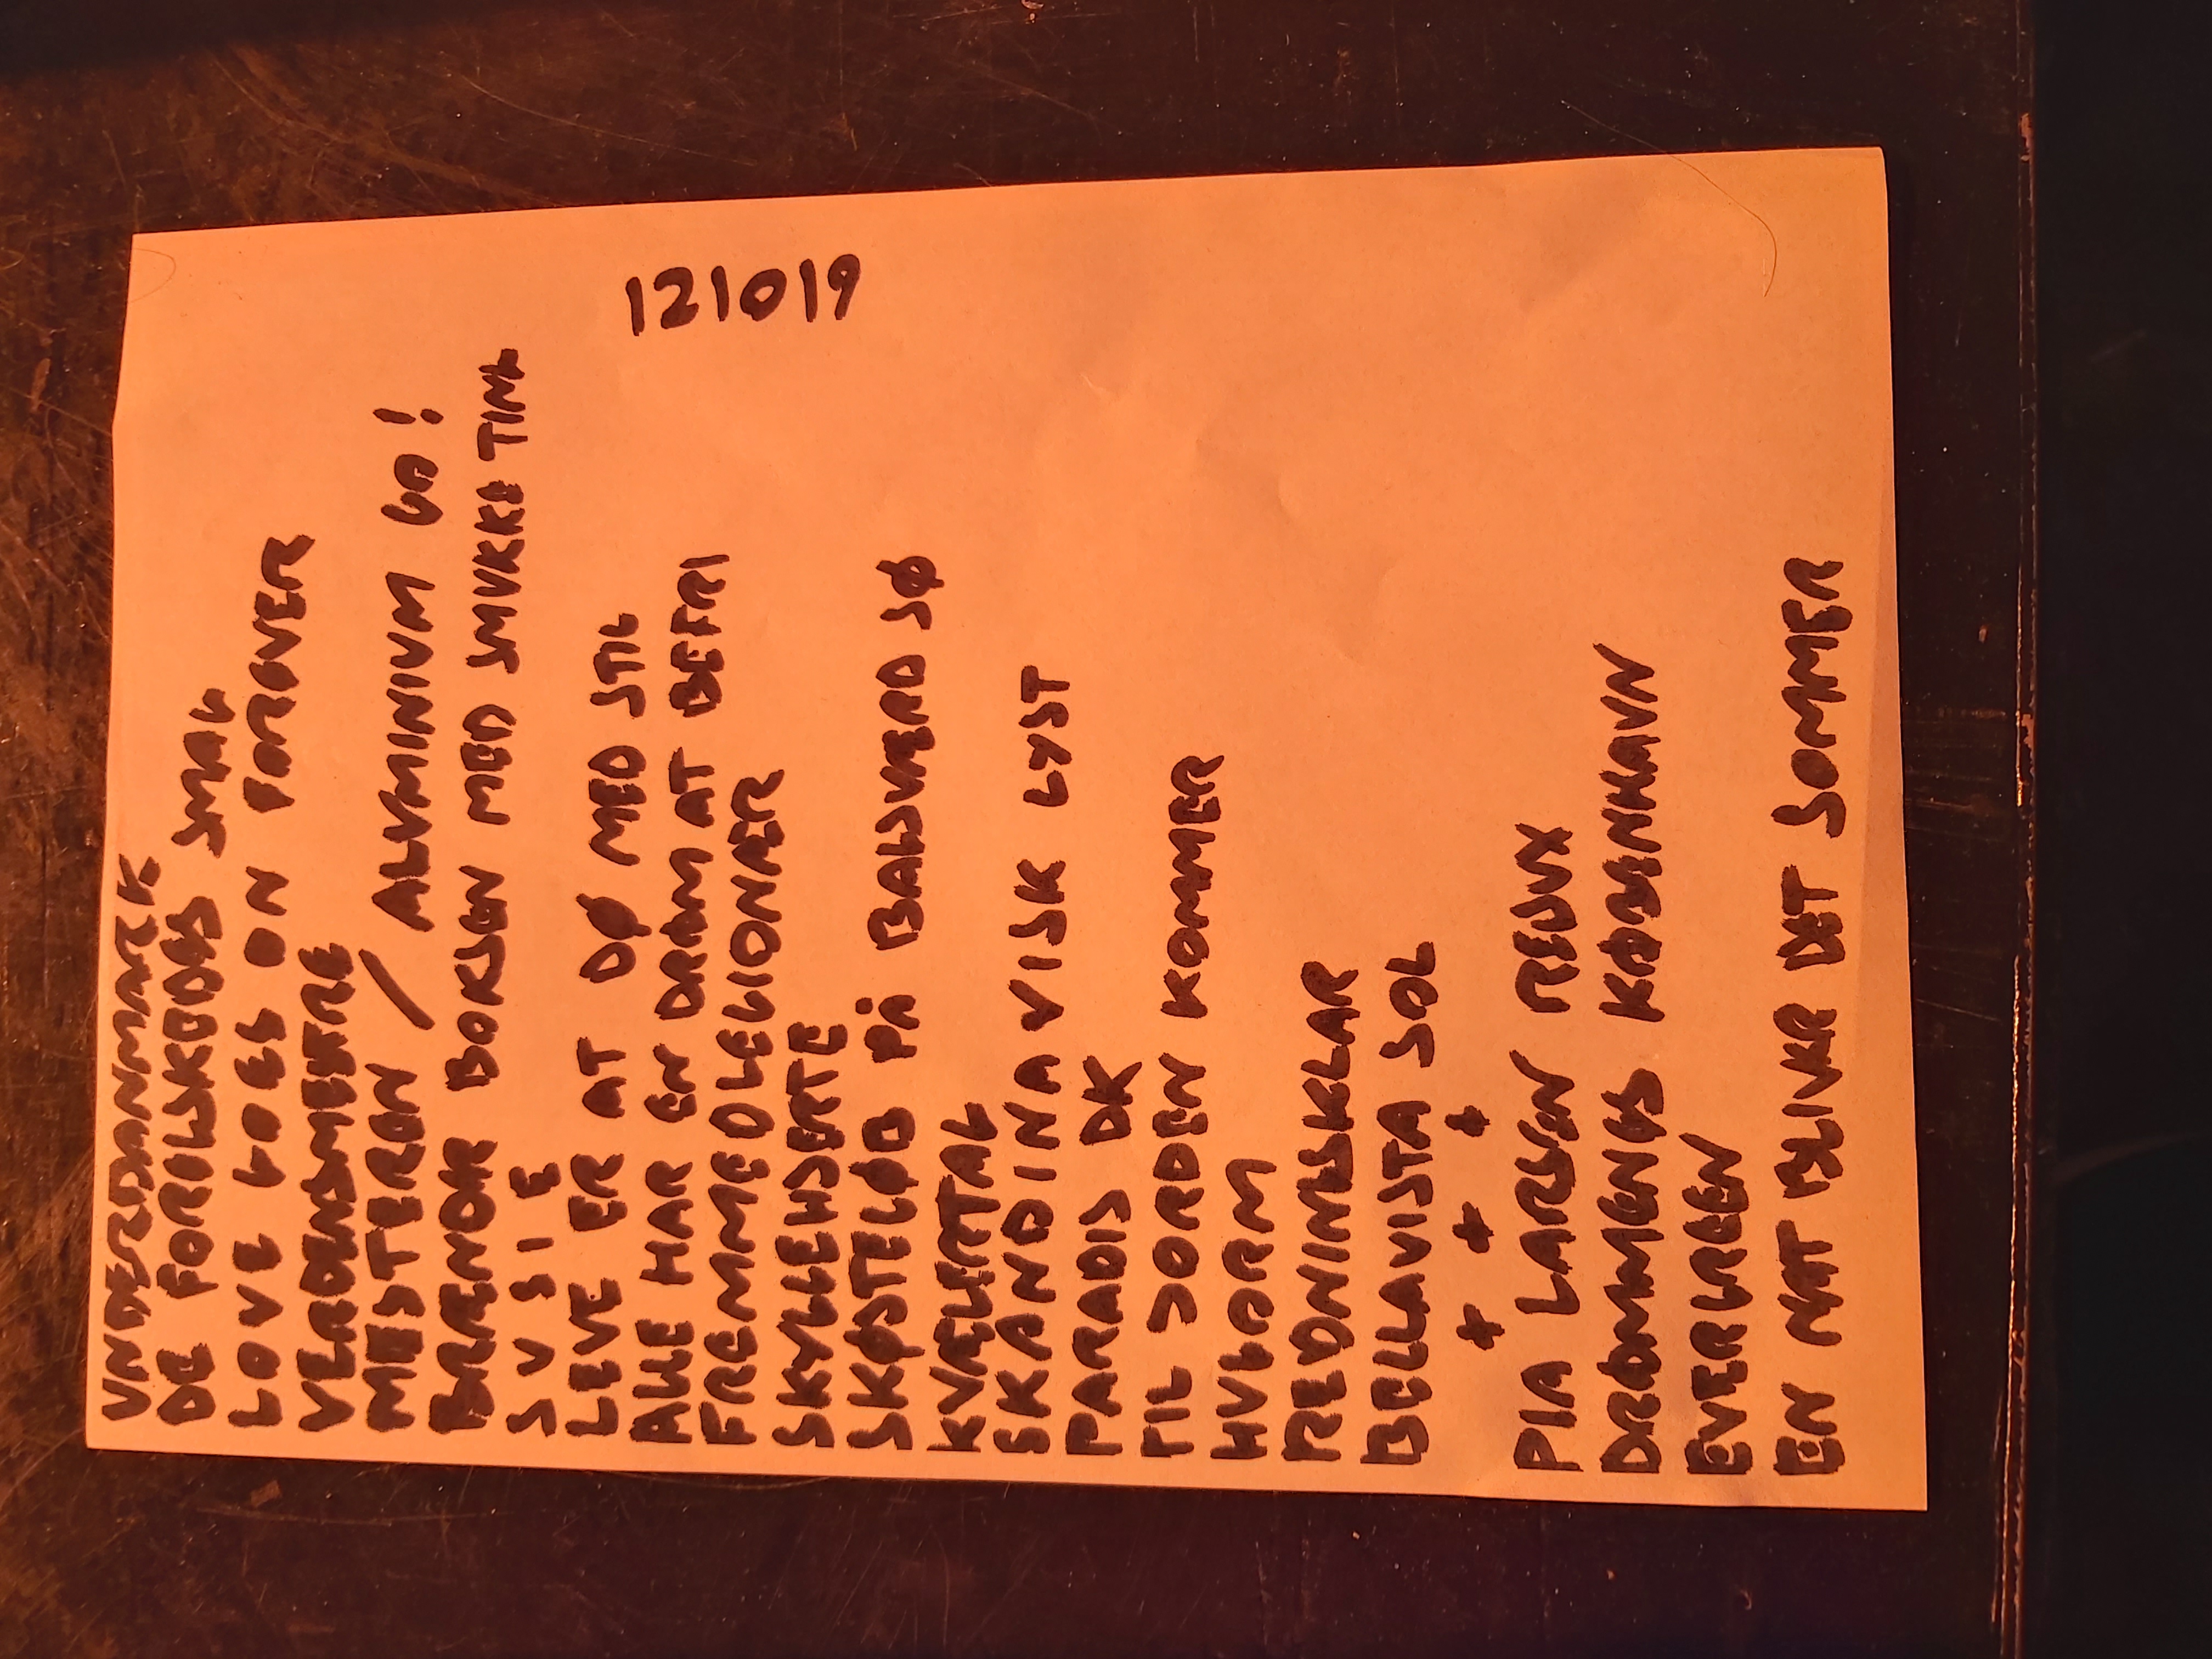 UNDERDANMARK
DE FORELSKEDES SMAG
LOVE GOES ON FOREVER
VERDENSMESTRE
MESTEREN / ALUMINIUM GO!
BRÆNOR BOKSEN MED SMUKKE TING
SUSIE
LEVE ER AT DØ MED STIL
ALLE HAR EN DRØM AT BEFRI
FREMMEDLEGIONÆR
SKYLLEHSDRTE
SKØTELØB PÅ BAGSVÆRD SØ
KVÆLERTAL
SKANDINAVISK LYST
PARADIS DK
TIL JORDEN KOMMER
HVGORM
REDNINGSKLAR
BELLAVISTA SOL
+ + +
PIA LARSEN REDUX
DRØMMENES KØBENHAVN
EVERGREEN
EN NAT BLIVER DET SOMMER
121019